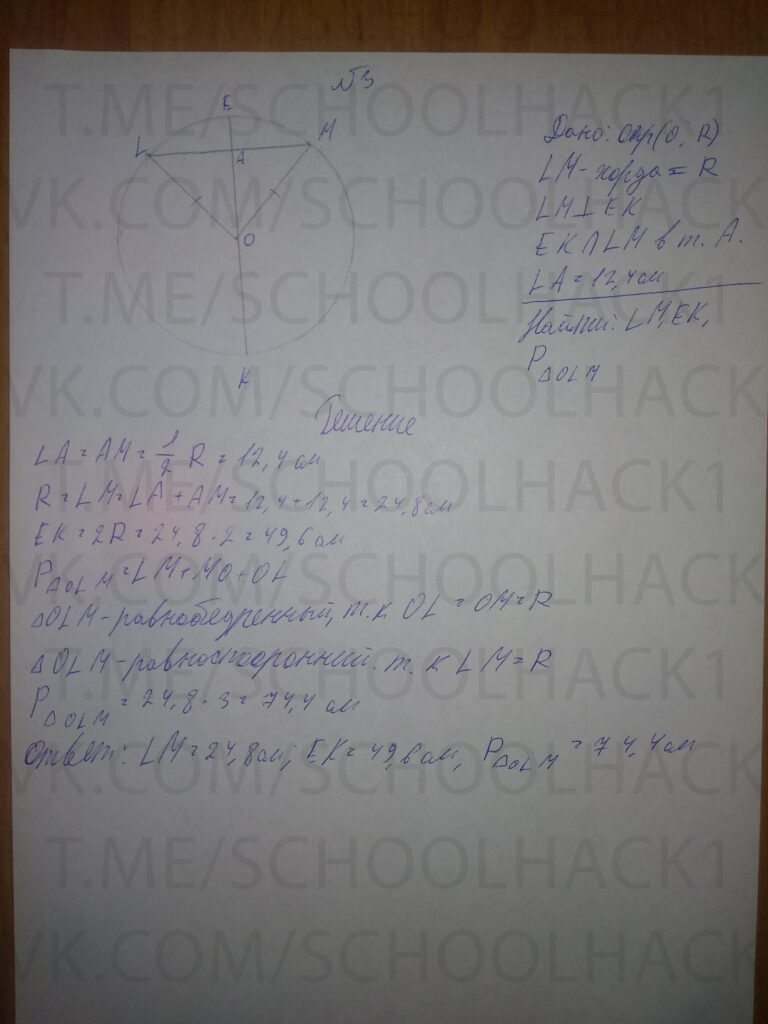 №3
E
L
M
A
O
K
Дано: Окр(O, R)
LM - хорда = R
LM ⊥ EK
EK ∩ LM в т. A.
LA = 12,4 см
Найти: LM, EK,
P△OLM
Решение
LA = AM = 1/2 R = 12,4 см
R = LM = LA + AM = 12,4 + 12,4 = 24,8 см
EK = 2R = 24,8 · 2 = 49,6 см
P△OLM = LM + MO + OL
△OLM - равнобедренный, т.к OL = OM = R
△OLM - равносторонний. т.к LM = R
P△OLM = 24,8 · 3 = 74,4 см
Ответ: LM = 24,8 см; EK = 49,6 см, P△OLM = 74,4 см
T.ME/SCHOOLHACK1
VK.COM/SCHOOLHACK1
T.ME/SCHOOLHACK1
VK.COM/SCHOOLHACK1
T.ME/SCHOOLHACK1
VK.COM/SCHOOLHACK1
T.ME/SCHOOLHACK1
VK.COM/SCHOOLHACK1
T.ME/SCHOOLHACK1
VK.COM/SCHOOLHACK1